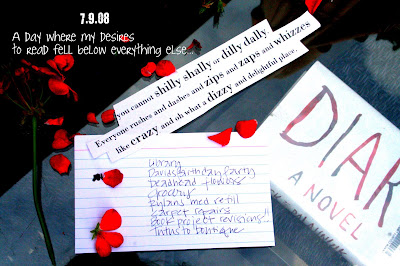 7.9.08
A Day where my Desires
to read fell below everything else...
you cannot shilly shally or dilly dally.
Everyone rushes and dashes and zips and zaps and whizzes
like crazy and oh what a dizzy and delightful place.
Library
Davids Birthday Party
Deadhead flowers
Grocery
Rylans med refill
Carpet repairs
Book project revisions!!
Tntns to boutique
DIAR
A NOVEL